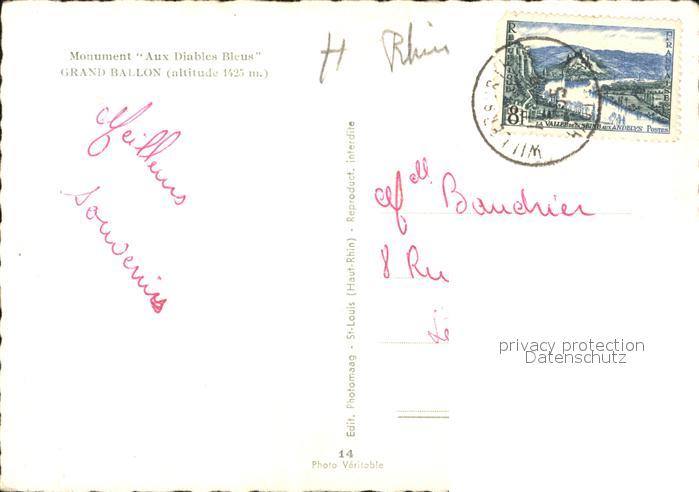 Monument "Aux Diables Bleus"
GRAND BALLON (altitude 1425 m.)
H Rhin
8F
LA VALLÉE DE LA SEINE AUX ANDELYS POSTES
Meilleurs
Souvenirs
Mdll Baudrier
8 Ru
Lé
privacy protection
Datenschutz
Edit. Photomaag - St-Louis (Haut-Rhin) - Reproduct. interdite
14
Photo Véritable